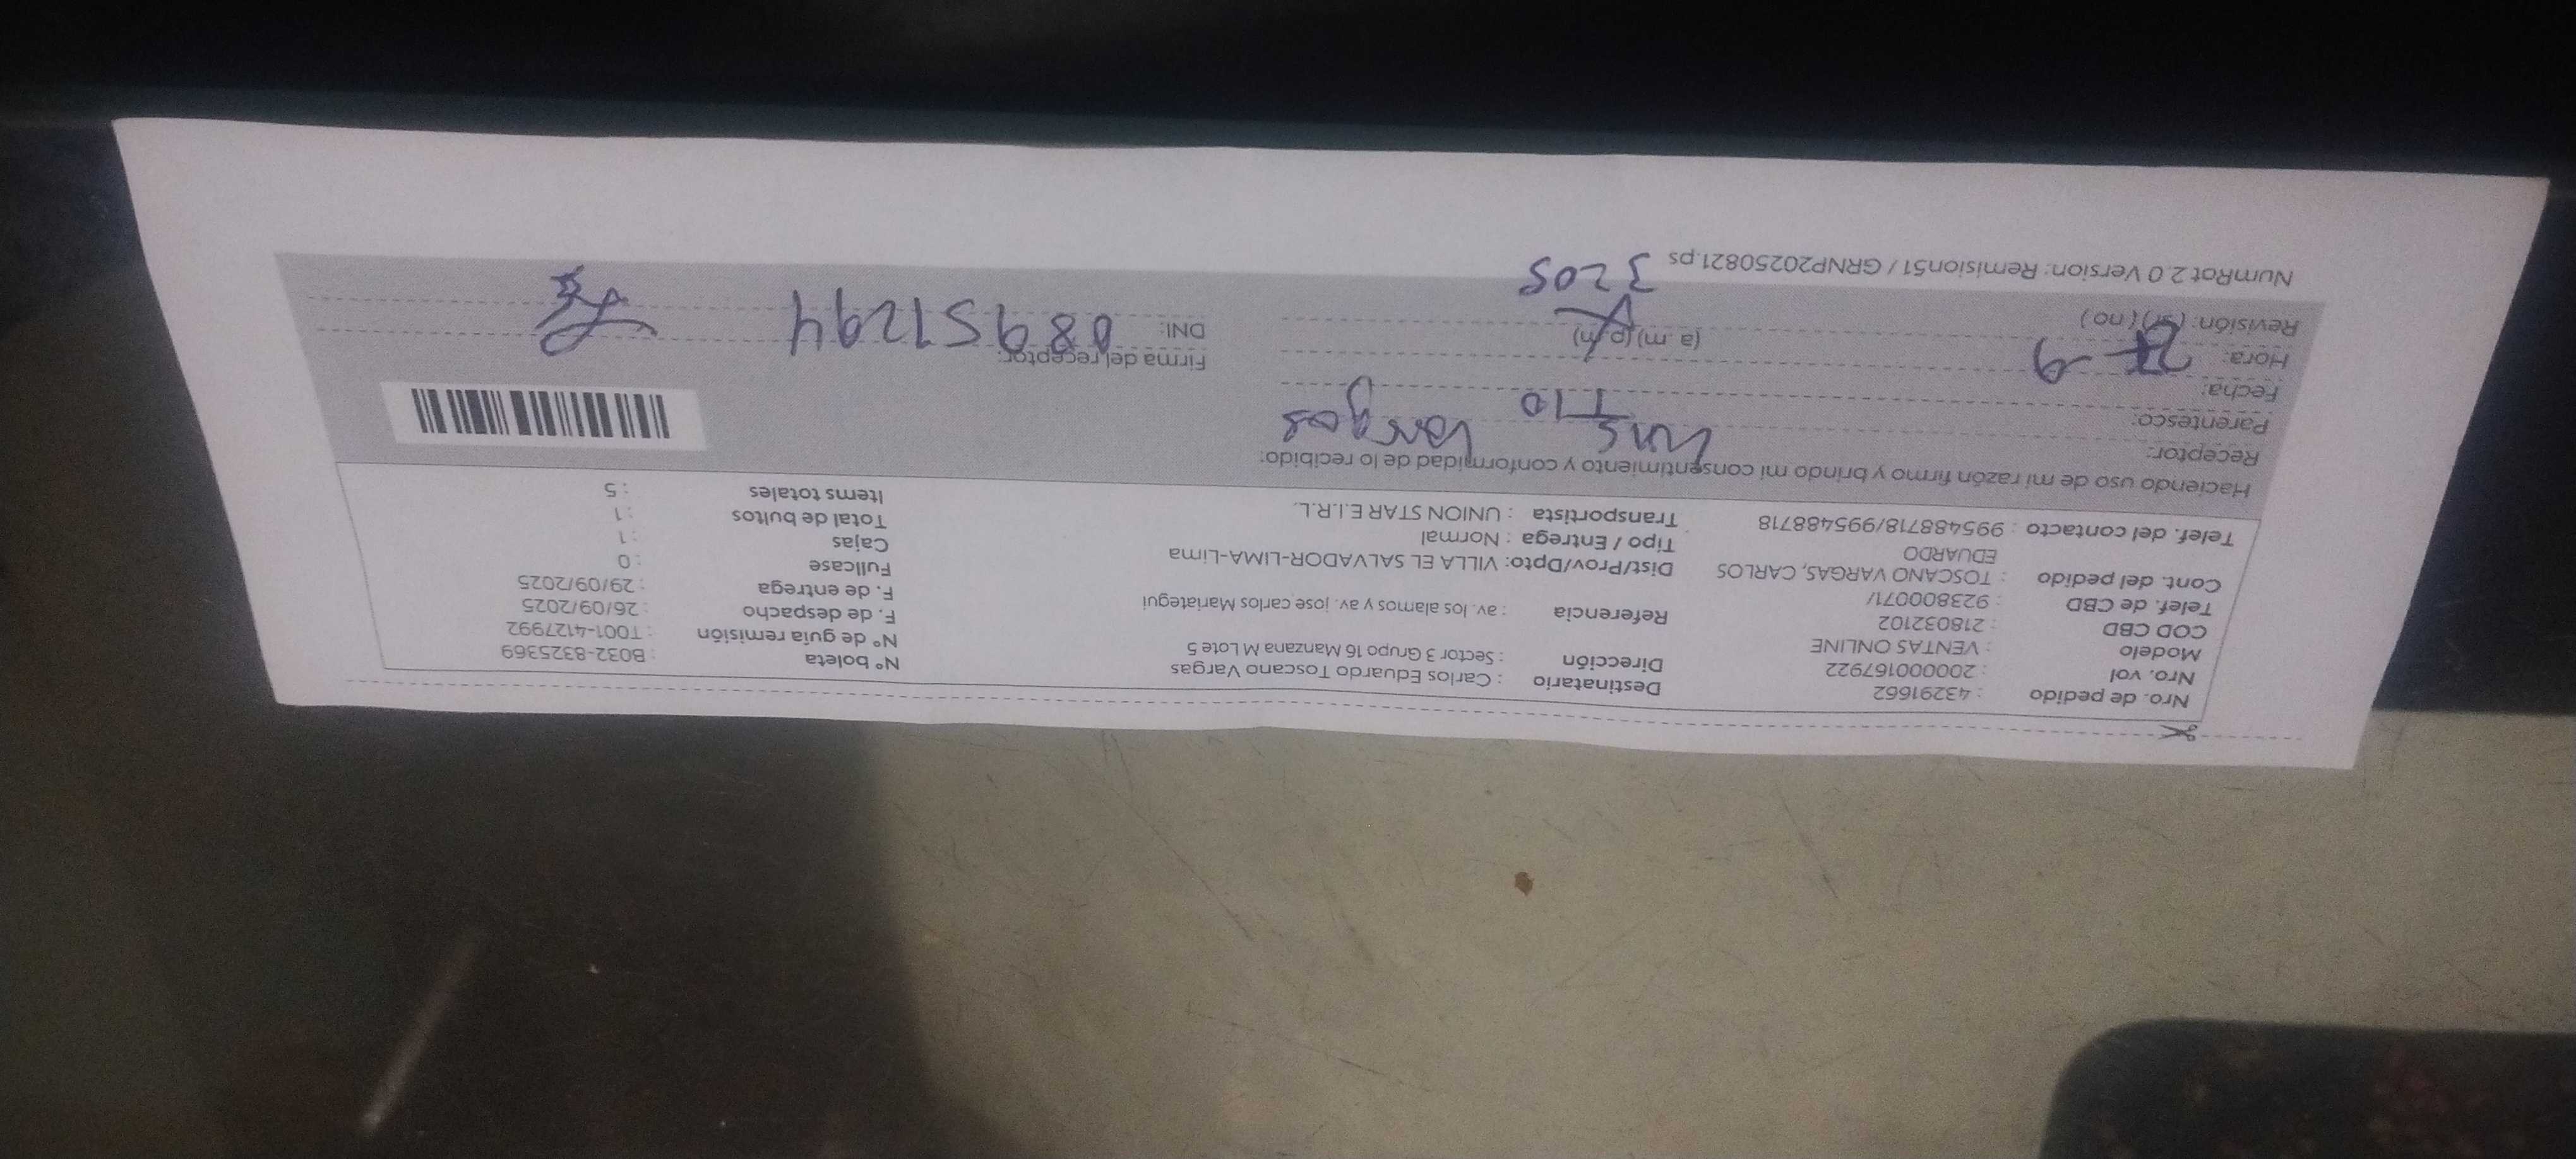 Nro. de pedido : 43291662
Nro. vol : 20000016792​2
Modelo : VENTAS ONLINE
COD CBD : 218032102
Telef. de CBD : 923800071/
Cont. del pedido : TOSCANO VARGAS, CARLOS EDUARDO
Telef. del contacto : 995488718/995488718
Destinatario : Carlos Eduardo Toscano Vargas
Dirección : Sector 3 Grupo 16 Manzana M Lote 5
Referencia : av. los alamos y av. jose carlos Mariategui
Dist/Prov/Dpto: VILLA EL SALVADOR-LIMA-Lima
Tipo / Entrega : Normal
Transportista : UNION STAR E.I.R.L.
Nº boleta : B032-8325369
Nº de guía remisión : T001-4127992
F. de despacho : 26/09/2025
F. de entrega : 29/09/2025
Fullcase : 0
Cajas : 1
Total de bultos : 1
Items totales : 5
Haciendo uso de mi razón firmo y brindo mi consentimiento y conformidad de lo recibido:
Receptor: Luis Vargas
Parentesco: TIO
Fecha:
Hora: (a m) (p m)
Revisión: (si) (no)
3 205
Firma del receptor:
DNI: 08951294
NumRot 2.0 Version: Remision51 / GRNP20250821.ps